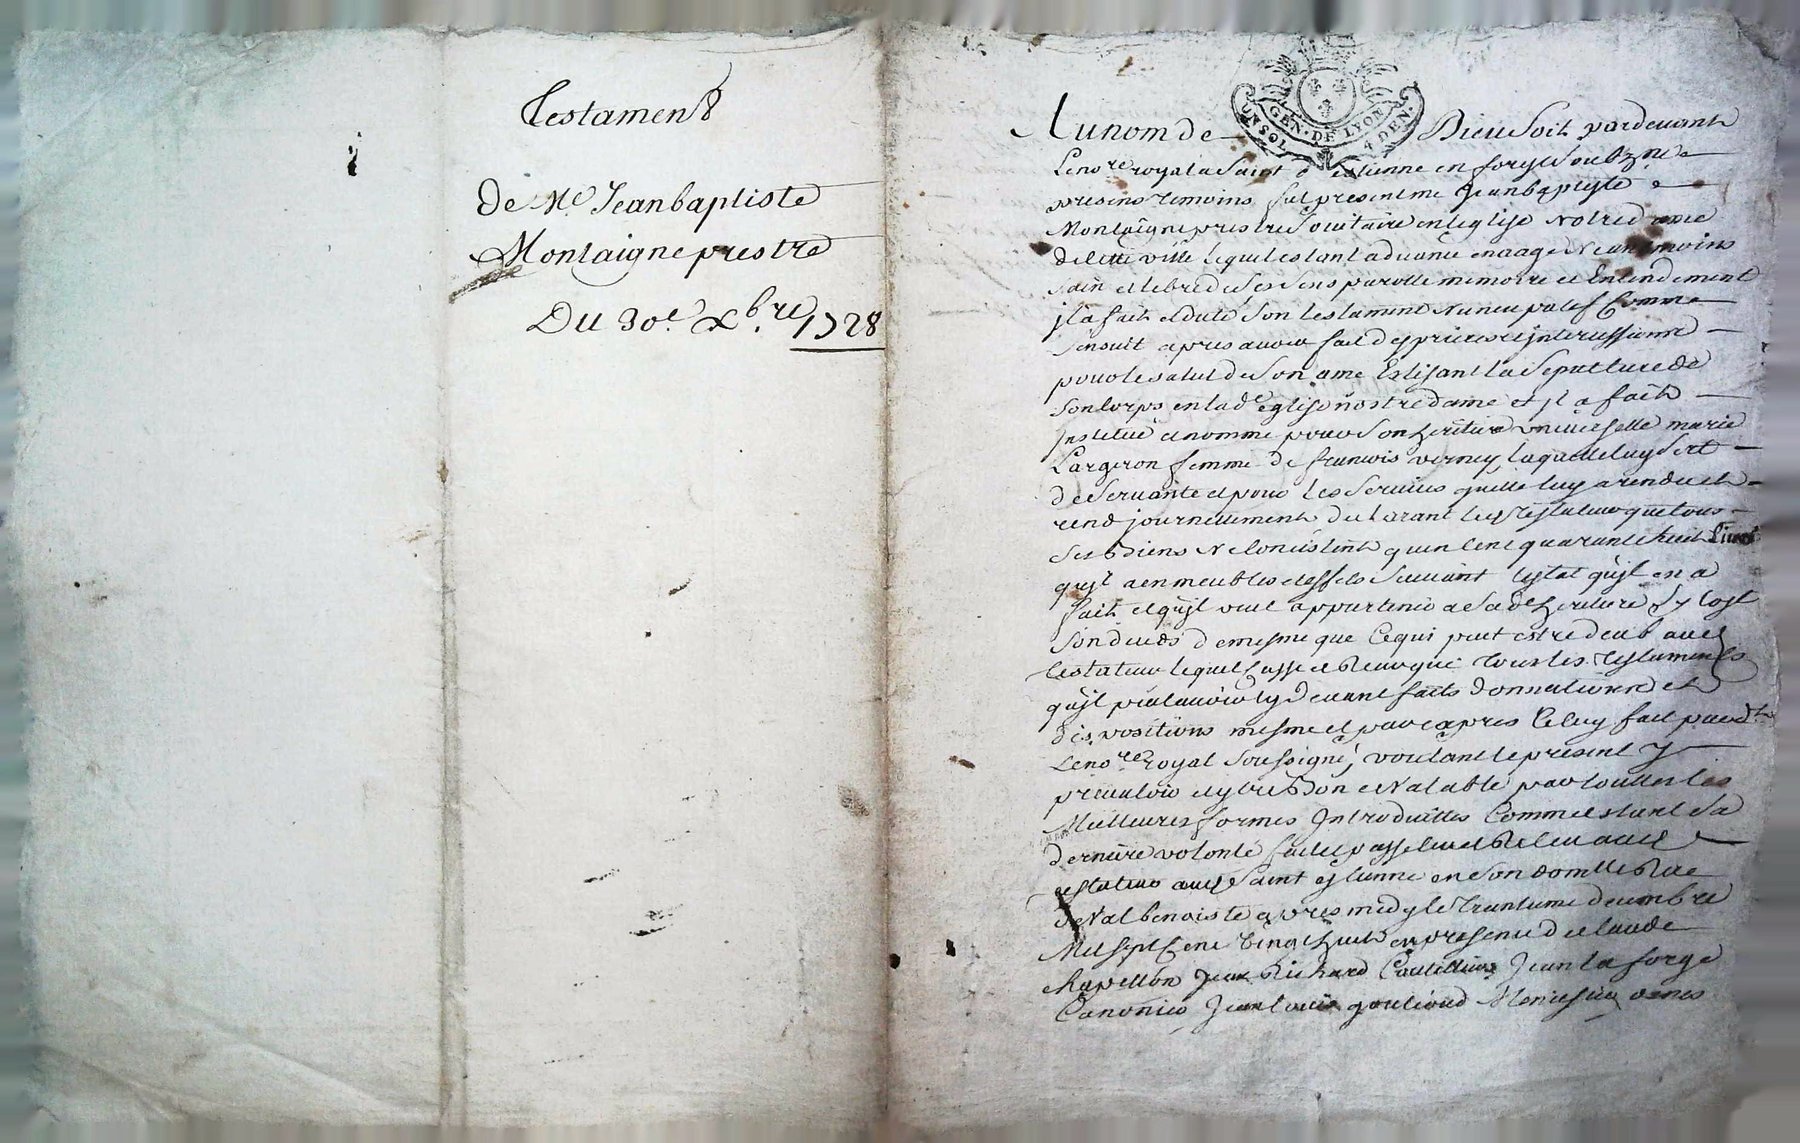 Testament
De Me Jeanbaptiste
Montaigne prestre
Du 30e Xbre 1728
GEN. DE LYON
UN SOL 4 DEN.
Au nom de Dieu Soit pardevant
Le nore royal a Saint Estienne en forez Soubzne
presens temoins fut present me Jean baptiste
Montaigne prestre Societaire en leglise Notredame
de cette ville Lequel estant advancé en aage Neanmoins
Sain et libre de Ses Sens parolle memoire et Entendement
jl a fait et dicté Son testament Nuncupatif Comme
Sensuit apres avoir fait des prieres
pour le salut de Son ame Eslisant la Sepulture de
Son Corps en lade eglise nostre dame et jl a fait
jnstitué et nommé pour Son heritiere universelle marie
Largeron femme de francois verney laquelle luy Sert
de Servante et pour les Services quelle luy a rendu et
rend journellement declarant ledt testateur que tous
Ses Biens Ne Consistent quen Cent quarante huit Livres
qujl a en meubles et effets Suivant lestat qujl en a
fait et qujl veut appartenir a Sade heritiere
de mesme que Ce qui peut estre deub audt
testateur lequel Casse et Revoque tous les testaments
qujl peut avoir cy devant faits donnations et
dispositions mesme et par expres Celuy fait pardt
Le nore Royal Soussigné, voulant le present
prevaloir estre Bon et Valable par touttes les
Meilleures formes Introduittes Comme estant Sa
derniere volonté fait et passé leu et Releu audt
testateur audt Saint estienne en Son domlle Rue
de Val benoiste apres midy le trentieme decembre
Mil Sept Cent Vingt huit en presence de Claude
Chapellon Jean Richard Coutellier Jean la forge
Canonier Jean louis gouttenoud